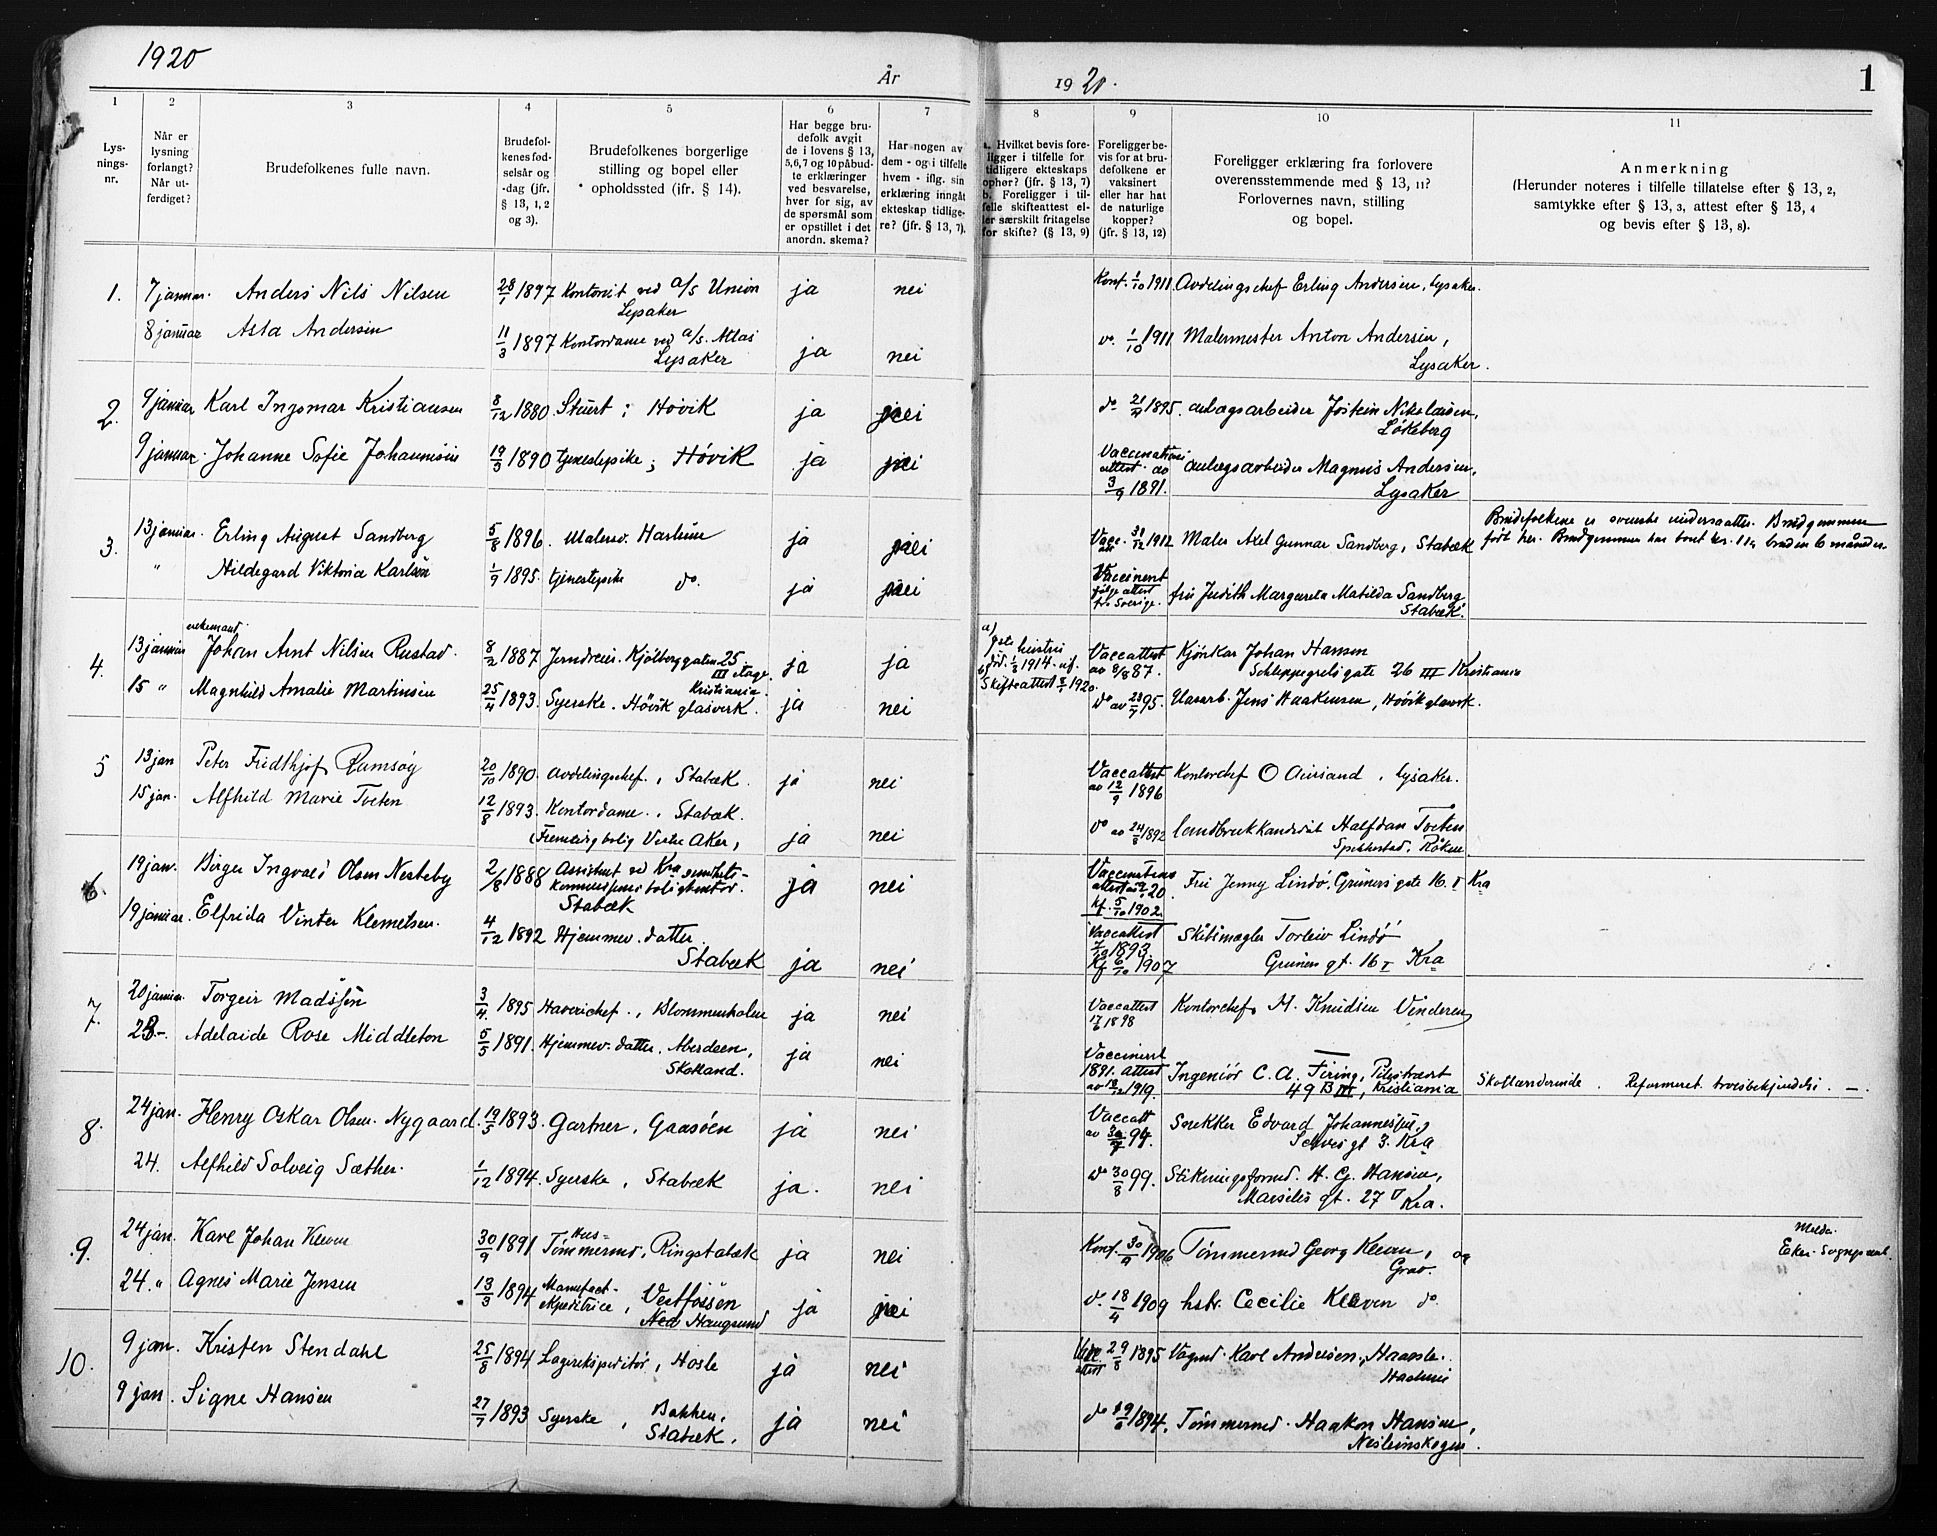 1920
År
19 20.
1
1
2
3
4
5
6
7
8
9
10
11
Lys-
nings-
nr.
Når er
lysning
forlangt?
Når ut-
ferdiget?
Brudefolkenes fulle navn.
Brudefol-
kenes fød-
selsår og
-dag (jfr.
§ 13, 1, 2
og 3).
Brudefolkenes borgerlige
stilling og bopel eller
opholdssted (ifr. § 14).
Har begge bru-
defolk avgit
de i lovens § 13,
5,6,7 og 10 påbud-
te erklæringer
ved besvarelse,
hver for sig, av
de spørsmål som
er opstillet i det
anordn. skema?
Har nogen av
dem - og i tilfelle
hvem - iflg. sin
erklæring inngått
ekteskap tidlige-
re? (jfr. § 13, 7).
a. Hvilket bevis fore-
ligger i tilfelle for
tidligere ekteskaps
ophør? (jfr. § 13, 7)
b. Foreligger i til-
felle skifteattest el-
ler særskilt fritagelse
for skifte? (§ 13, 9)
Foreligger be-
vis for at bru-
defolkene er
vaksinert
eller har hat
de naturlige
kopper?
(jfr. § 13, 12)
Foreligger erklæring fra forlovere
overensstemmende med § 13, 11?
Forlovernes navn, stilling
og bopel.
Anmerkning
(Herunder noteres i tilfelle tillatelse efter § 13, 2,
samtykke efter § 13, 3, attest efter § 13, 4
og bevis efter § 13, 8).
1. 7 januar. Anders Nils Nilsen 28/1 1897 Kontorist ved A/S Union ja nei Konf. 1/10 1911 Avdelingschef Erling Andersen, Lysaker.
Lysaker
8 januar Asta Andersen 11/3 1897 Kontordame ved A/S. Atlas ja nei do. 1/10 1911 Malermester Anton Andersen,
Lysaker Lysaker.
2. 9 januar Karl Ingomar Kristiansen 8/12 1880 Stuert; Høvik ja nei do 21/4 1895. anlægsarbeider Jostein Nikolaisen,
Løkeberg
9 januar. Johanne Sofie Johannesen 19/3 1890 tjenestepike; Høvik ja nei Vaccinations
attest av
3/9 1891. anlægsarbeider Magnus Andersen,
Lysaker
3. 13 januar. Erling August Sandberg 5/8 1896. Malersv. Harlum ja nei Vacc. att 31/12 1912 Maler Axel Gunnar Sandberg, Stabæk
Brudefolkene er svenske undersaatter. Brudgommen
født her. Brudgommen har bodt her. 11 bruden 6 måneder.
" Hildegard Viktoria Karlsen 1/9 1895. tjenestepike do. ja nei Vaccinert
følge attest
fra Sverige. frü Judith Margareta Matilda Sandberg
Stabæk.
4. 13 januar enkemand
Johan Arnt Nilsen Rustad. 8/2 1887 Jerndreier. Kjölberggaten 25
III etage.
Kristiania. ja ja
a) hustru
død. 1/3 1914
b) Skifteattest 1920. Vaccattest
av 8/8 87. Kjørekar Johan Hansen
Schleppegrelsgate 26 III Kristiania
15 " Magnhild Amalie Martinsen 25/4 1893. Syerske. Høvik glasverk. ja nei do av 23/7 95. Glasarb. Jens Haakensen, Høvikglasverk.
5 13 jan Peter Fridthjof Ramsøy 20/10 1890. avdelingschef., Stabæk. ja nei Vaccattest
av 12/9 1896 Kontorchef O Aursand, Lysaker.
15 jan. Alfhild Marie Tveten 12/8 1893. Kontordame., Stabæk.
(Fremtidig bolig Vestre Aker, ja nei do av 24/8 1892 landbrukkandidat Halfdan Tveten
Spikkestad. Røken
6. 19 jan. Birger Ingvald Olsen Nesteby 2/8 1888 Assistent ved Kra sundhets-
kommissions boligkontor.
Stabæk ja nei Vaccinations
attest 20.
Kf. 5/10 1902. Frü Jenny Lindö. Grüners gate 16. I Kra
19 januar. Elfrida Vinter Klemetsen. 4/12 1892 Hjemmev. datter.
Stabæk ja nei Vaccattest
7/10 1893
Kf 6/10 1907 Skibsmægler Torleiv Lindö
Grüners gt. 16 I Kra
7. 20 januar. Torgeir Madssen 3/4. 1895 Haverichef., Blommenholm ja nei Vaccattest
17/6 1898 Kontorchef M. Knudsen Vinderen
28- Adelaide Rose Middleton 5/5 1891. Hjemmev. datter. Aberdeen,
Skotland. ja nei Vaccinert
1891. attest
av 18/12 1919. Ingeniör C. A. Firing, Pilestrædet
49 B III, Kristiania Skotlænderinde. Reformert trosbekjendelse. —.
8. 24 jan. Henry Oskar Olsen Nygaard. 19/5 1893. Gartner, Gaasøen ja nei Vaccatt
av 30/7 94. Snekker Edvard Johannessen,
Solvei gt 3. Kra
24. Alfhild Solveig Sæther. 1/12 1894. Syerske, Stabæk ja. nei do 30/8 99. Stikningsformd. H. G. Hansen,
Marselis gt. 27 V Kra.
.9. 24 jan. Karl Johan Kleven 30/9 1891 Hus-
Tømmermd, Ringstabæk ja nei Konf. 30/9 1906 Tømmermd Georg Kleven, og
Grav. Melda.
Eker Sogneprest.
24. " Agnes Marie Jensen 13/3 1894 Manufact-
ekspeditrice, Vestfossen
Nedre Haugsund ja nei do. 18/4 1909 hstr. Cecilie Kleven do.
10. 9 jan. Kristen Stendahl 25/8 1894 Lagerekspeditör, Hosle ja nei Vacc
attest 29/8 1895 Vognmd. Karl Andersen,
9 jan. Signe Hansen 27/7 1893 Syerske, Bakken,
Stabæk. ja nei do 19/6 1894. Tømmermd. Haakon Hansen,
Nesteinskogen.